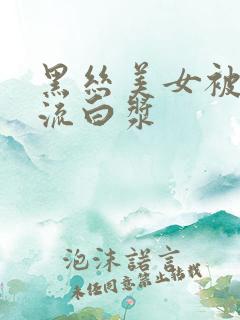 黑丝美女被
流白浆
泡沫諾言
未任同意禁止转载